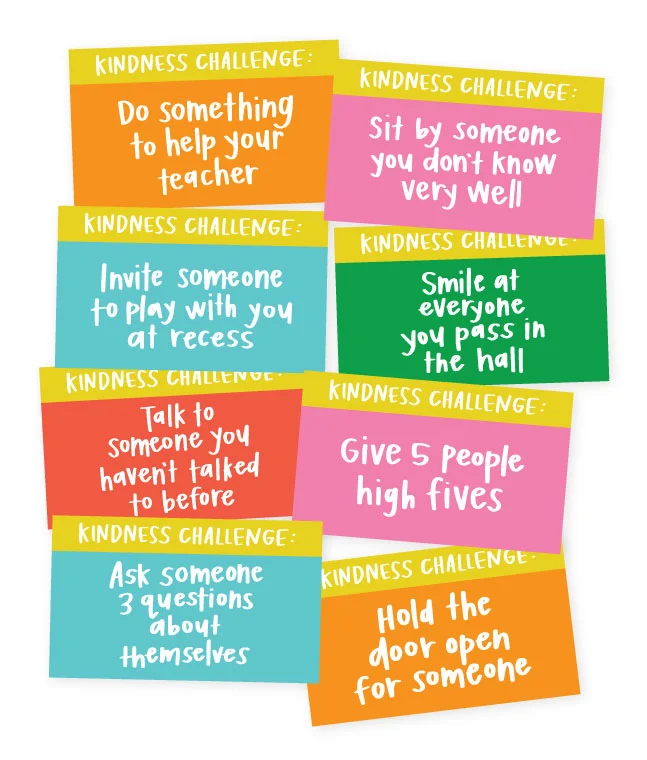 KINDNESS CHALLENGE:
Do something
to help your
teacher
KINDNESS CHALLENGE:
Sit by someone
you don't know
very well
KINDNESS CHALLENGE:
Invite someone
to play with you
at recess
KINDNESS CHALLENGE:
Smile at
everyone
you pass in
the hall
KINDNESS CHALLENGE:
Talk to
someone you
haven't talked
to before
KINDNESS CHALLENGE:
Give 5 people
high fives
KINDNESS CHALLENGE:
Ask someone
3 questions
about
themselves
KINDNESS CHALLENGE:
Hold the
door open
for someone